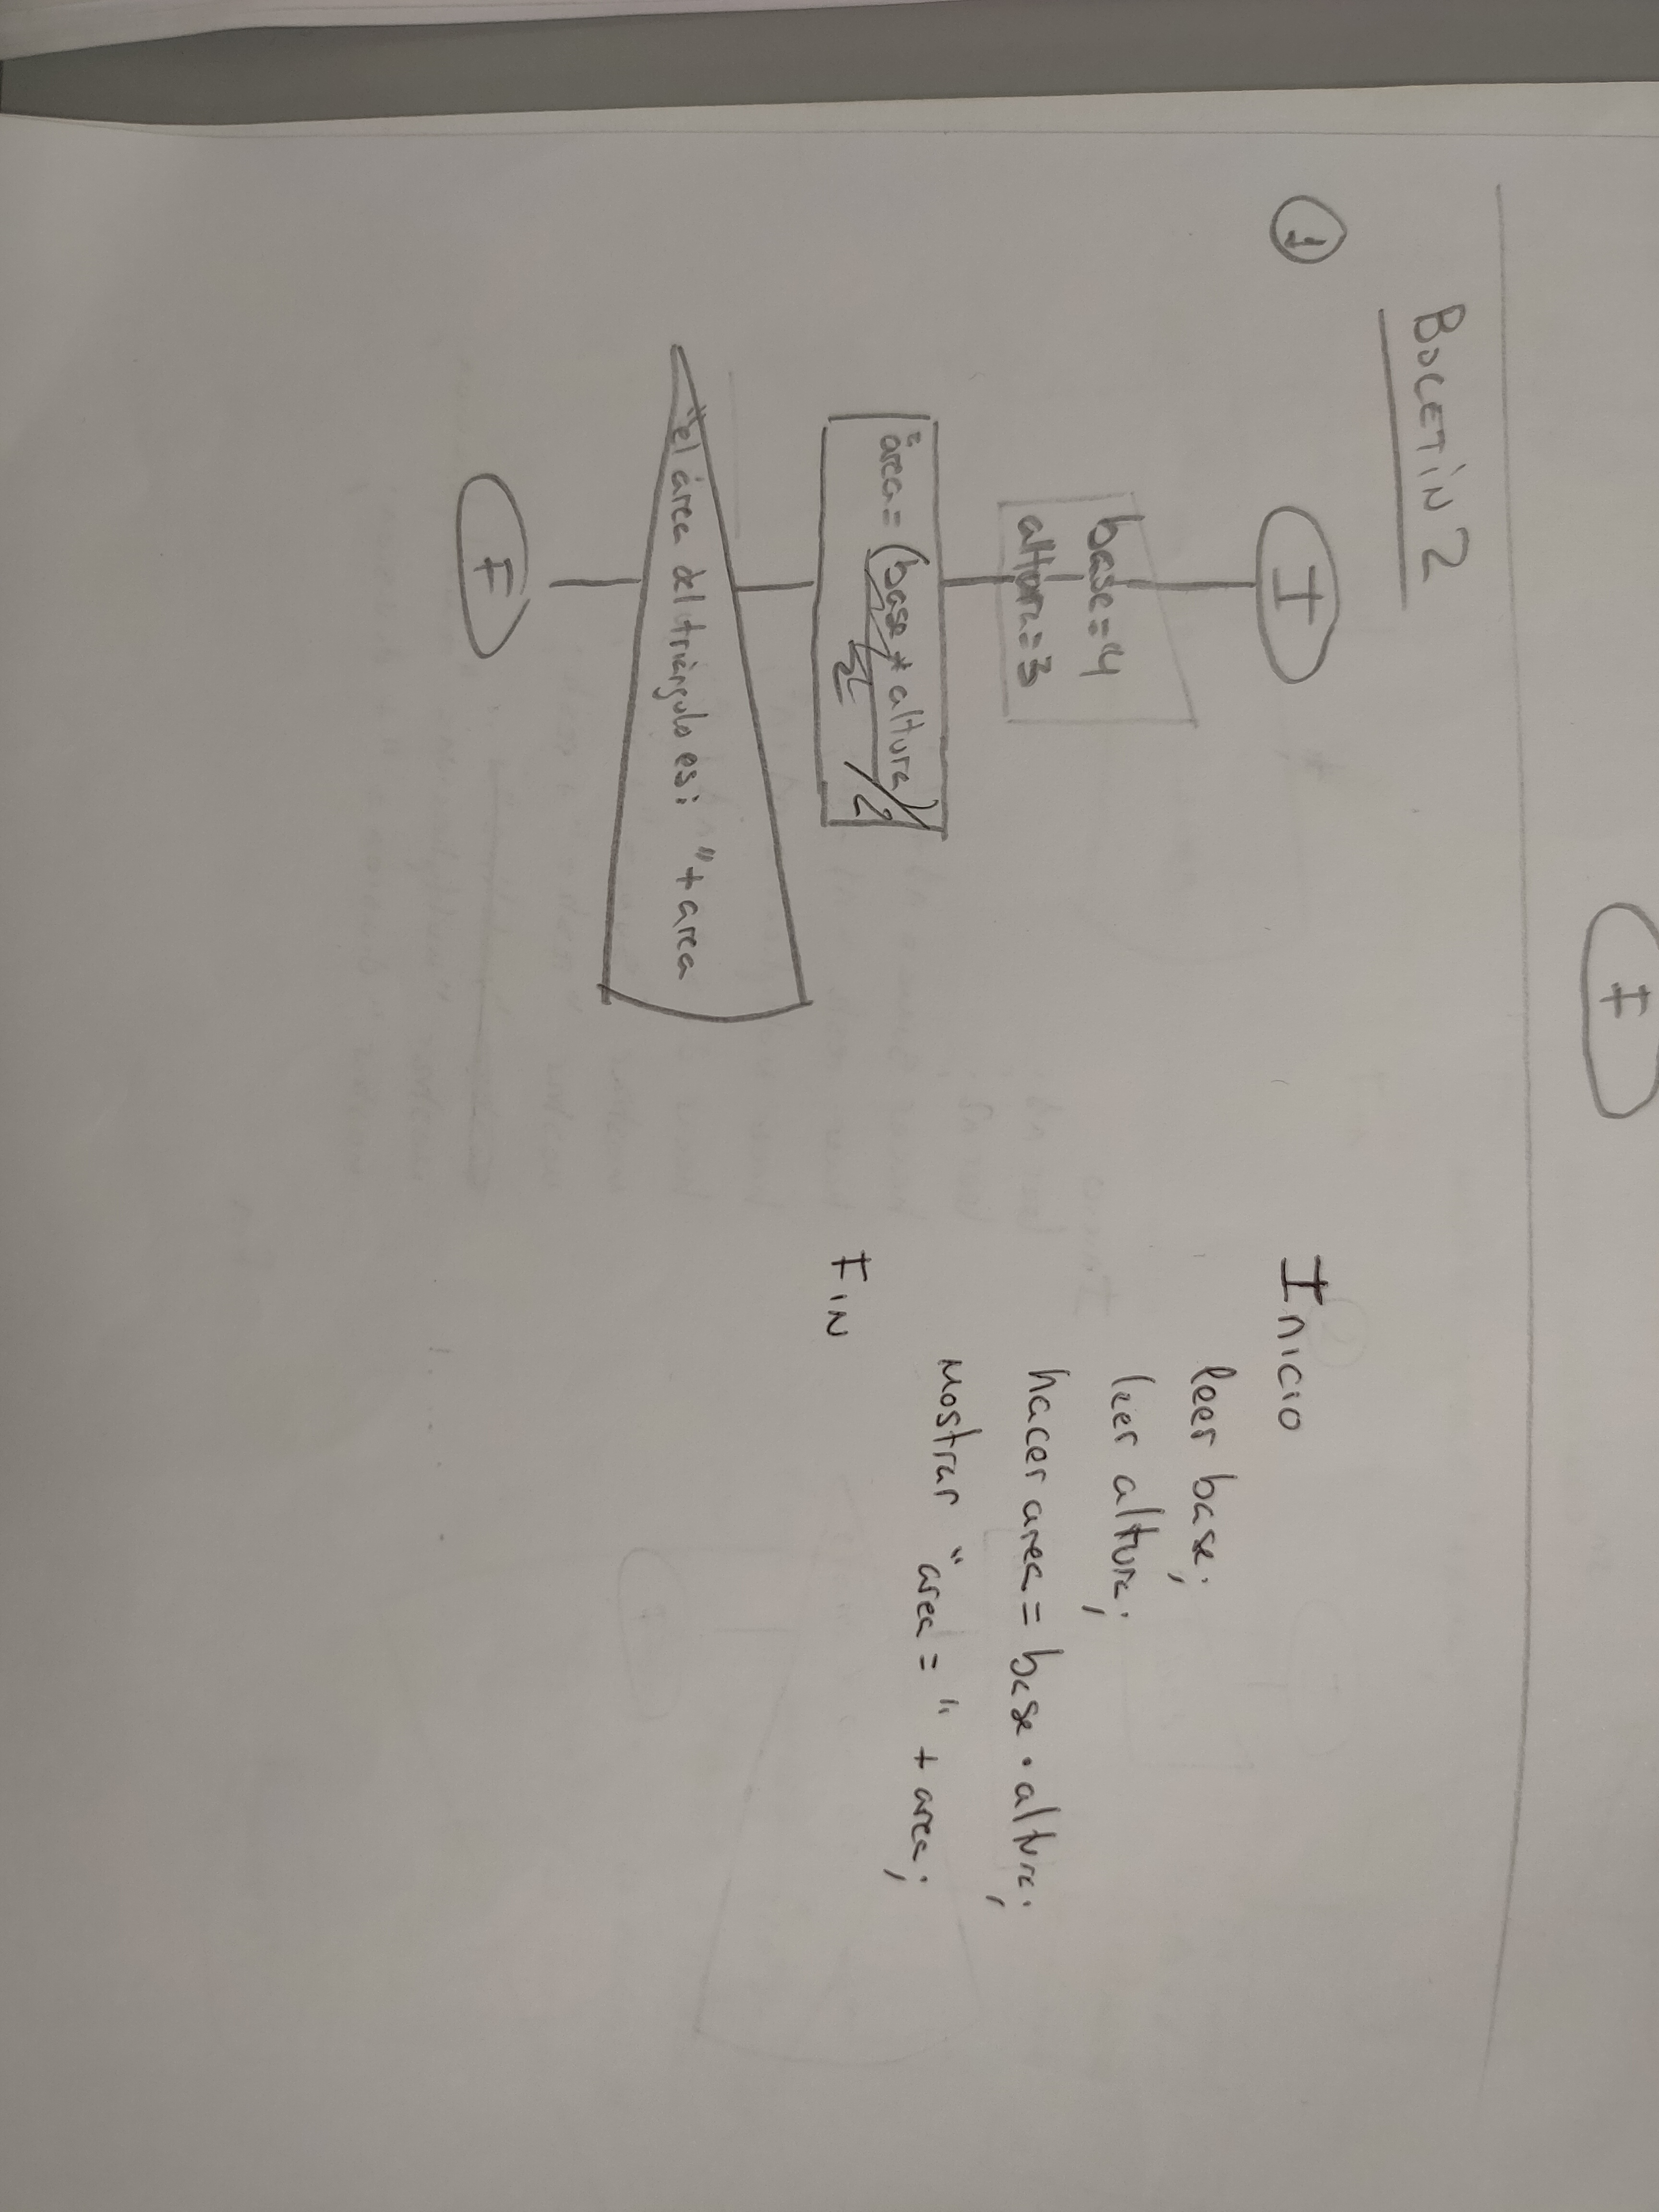 F
BOLETIN 2
1
I
base=4
altura=3
área=(base*altura)/2
"el área del triángulo es: "+area
F
Inicio
leer base;
leer altura;
hacer area = base · altura;
mostrar "area = " + area;
FIN